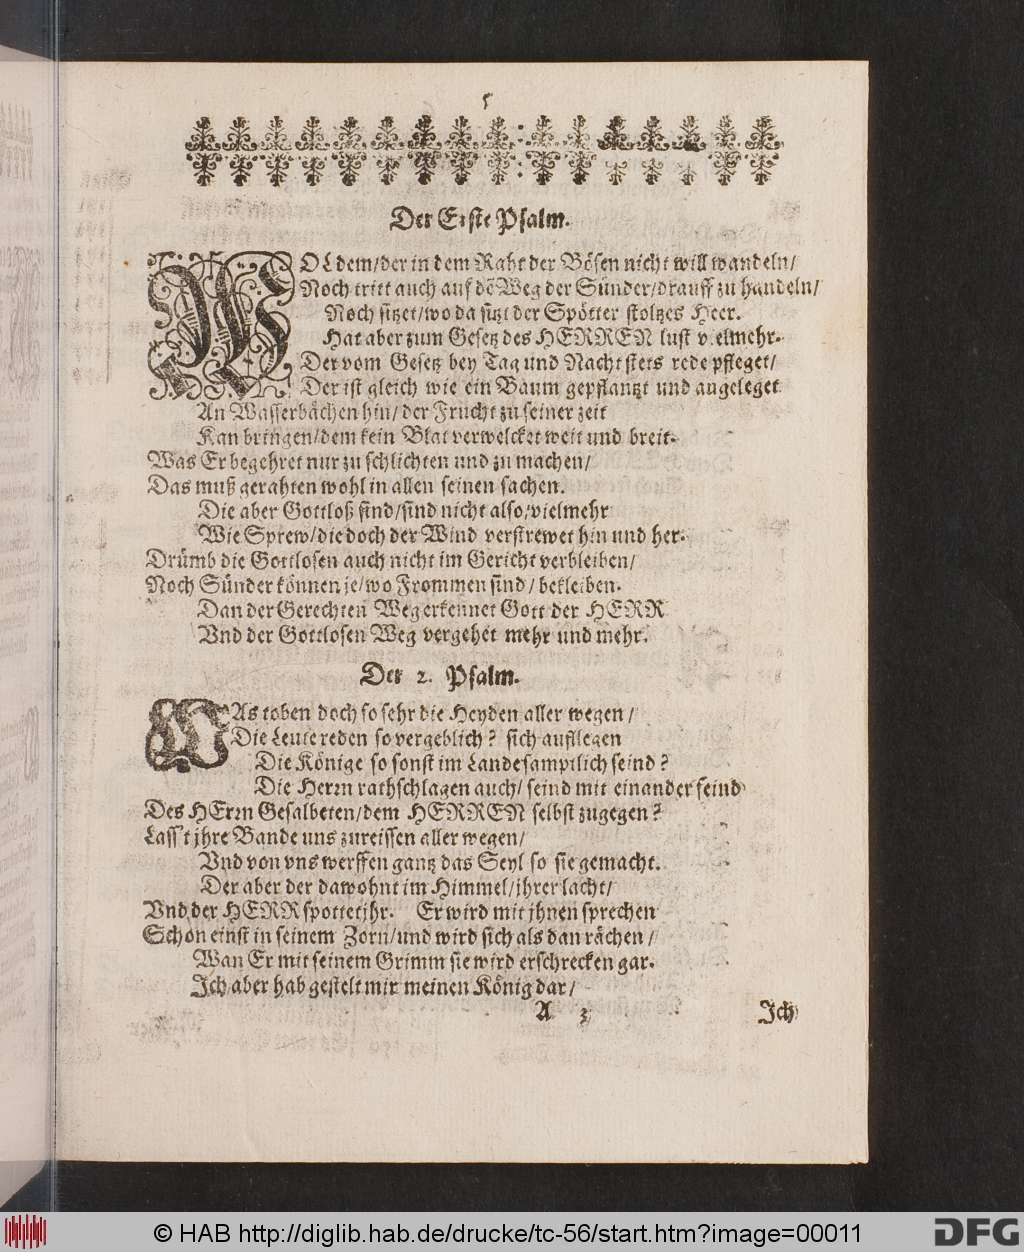 5
Der Erste Psalm.
WOL dem/der in dem Raht der Bösen nicht will wandeln/
Noch tritt auch auf dē Weg der Sünder/drauff zu handeln/
Noch sitzet/wo da sitzt der Spötter stoltzes Heer.
Hat aber zum Gesetz des HERREN lust vielmehr.
Der vom Gesetz bey Tag und Nacht stets rede pfleget/
Der ist gleich wie ein Baum gepflantzt und angeleget
An Wasserbächen hin/der Frucht zu seiner zeit
Kan bringen/dem kein Blat verwelcket weit und breit.
Was Er begehret nur zu schlichten und zu machen/
Das muß gerahten wohl in allen seinen sachen.
Die aber Gottloß sind/sind nicht also/vielmehr
Wie Sprew/die doch der Wind verstrewet hin und her.
Drümb die Gottlosen auch nicht im Gericht verbleiben/
Noch Sünder können je/wo Frommen sind/bekleiben.
Dan der Gerechten Weg erkennet Gott der HERR
Vnd der Gottlosen Weg vergehet mehr und mehr.
Der 2. Psalm.
WAs toben doch so sehr die Heyden aller wegen/
Die Leute reden so vergeblich? sich aufllegen
Die Könige so sonst im Lande sämptlich seind?
Die Herrn rathschlagen auch/ seind mit einander feind
Des HErrn Gesalbeten/dem HERREN selbst zugegen?
Lass't jhre Bande uns zureissen aller wegen/
Vnd von vns werffen gantz das Seyl so sie gemacht.
Der aber der da wohnt im Himmel/jhrer lacht/
Vnd der HERR spottet jhr. Er wird mit jhnen sprechen
Schon einst in seinem Zorn/und wird sich als dan rächen/
Wan Er mit seinem Grimm sie wird erschrecken gar.
Ich aber hab gestelt mir meinen König dar/
A 3 Ich
© HAB http://diglib.hab.de/drucke/tc-56/start.htm?image=00011
DFG